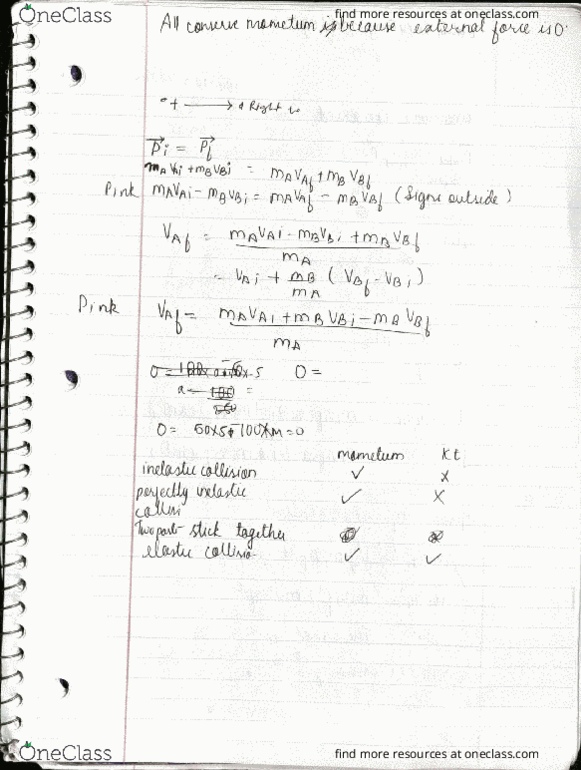 OneClass
find more resources at oneclass.com
All conserve mometum is because external force is 0.
+ → Right
P⃗i = P⃗f
mAVAi + mBVBi = mAVAf + mBVBf
Pink mAVAi - mBVBi = mAVAf - mBVBf (Signs outside)
VAf = mAVAi - mBVBi + mBVBf
mA
= VAi + mB/mA (VBf - VBi)
Pink VAf = mAVAi + mBVBi - mBVBf
mA
0 =
0 = 50x5 100 =0
mometum
inelastic collision ✓ x
perfectly inelastic ✓ x
Two part stick together
elastic collision ✓ ✓
OneClass
find more resources at oneclass.com